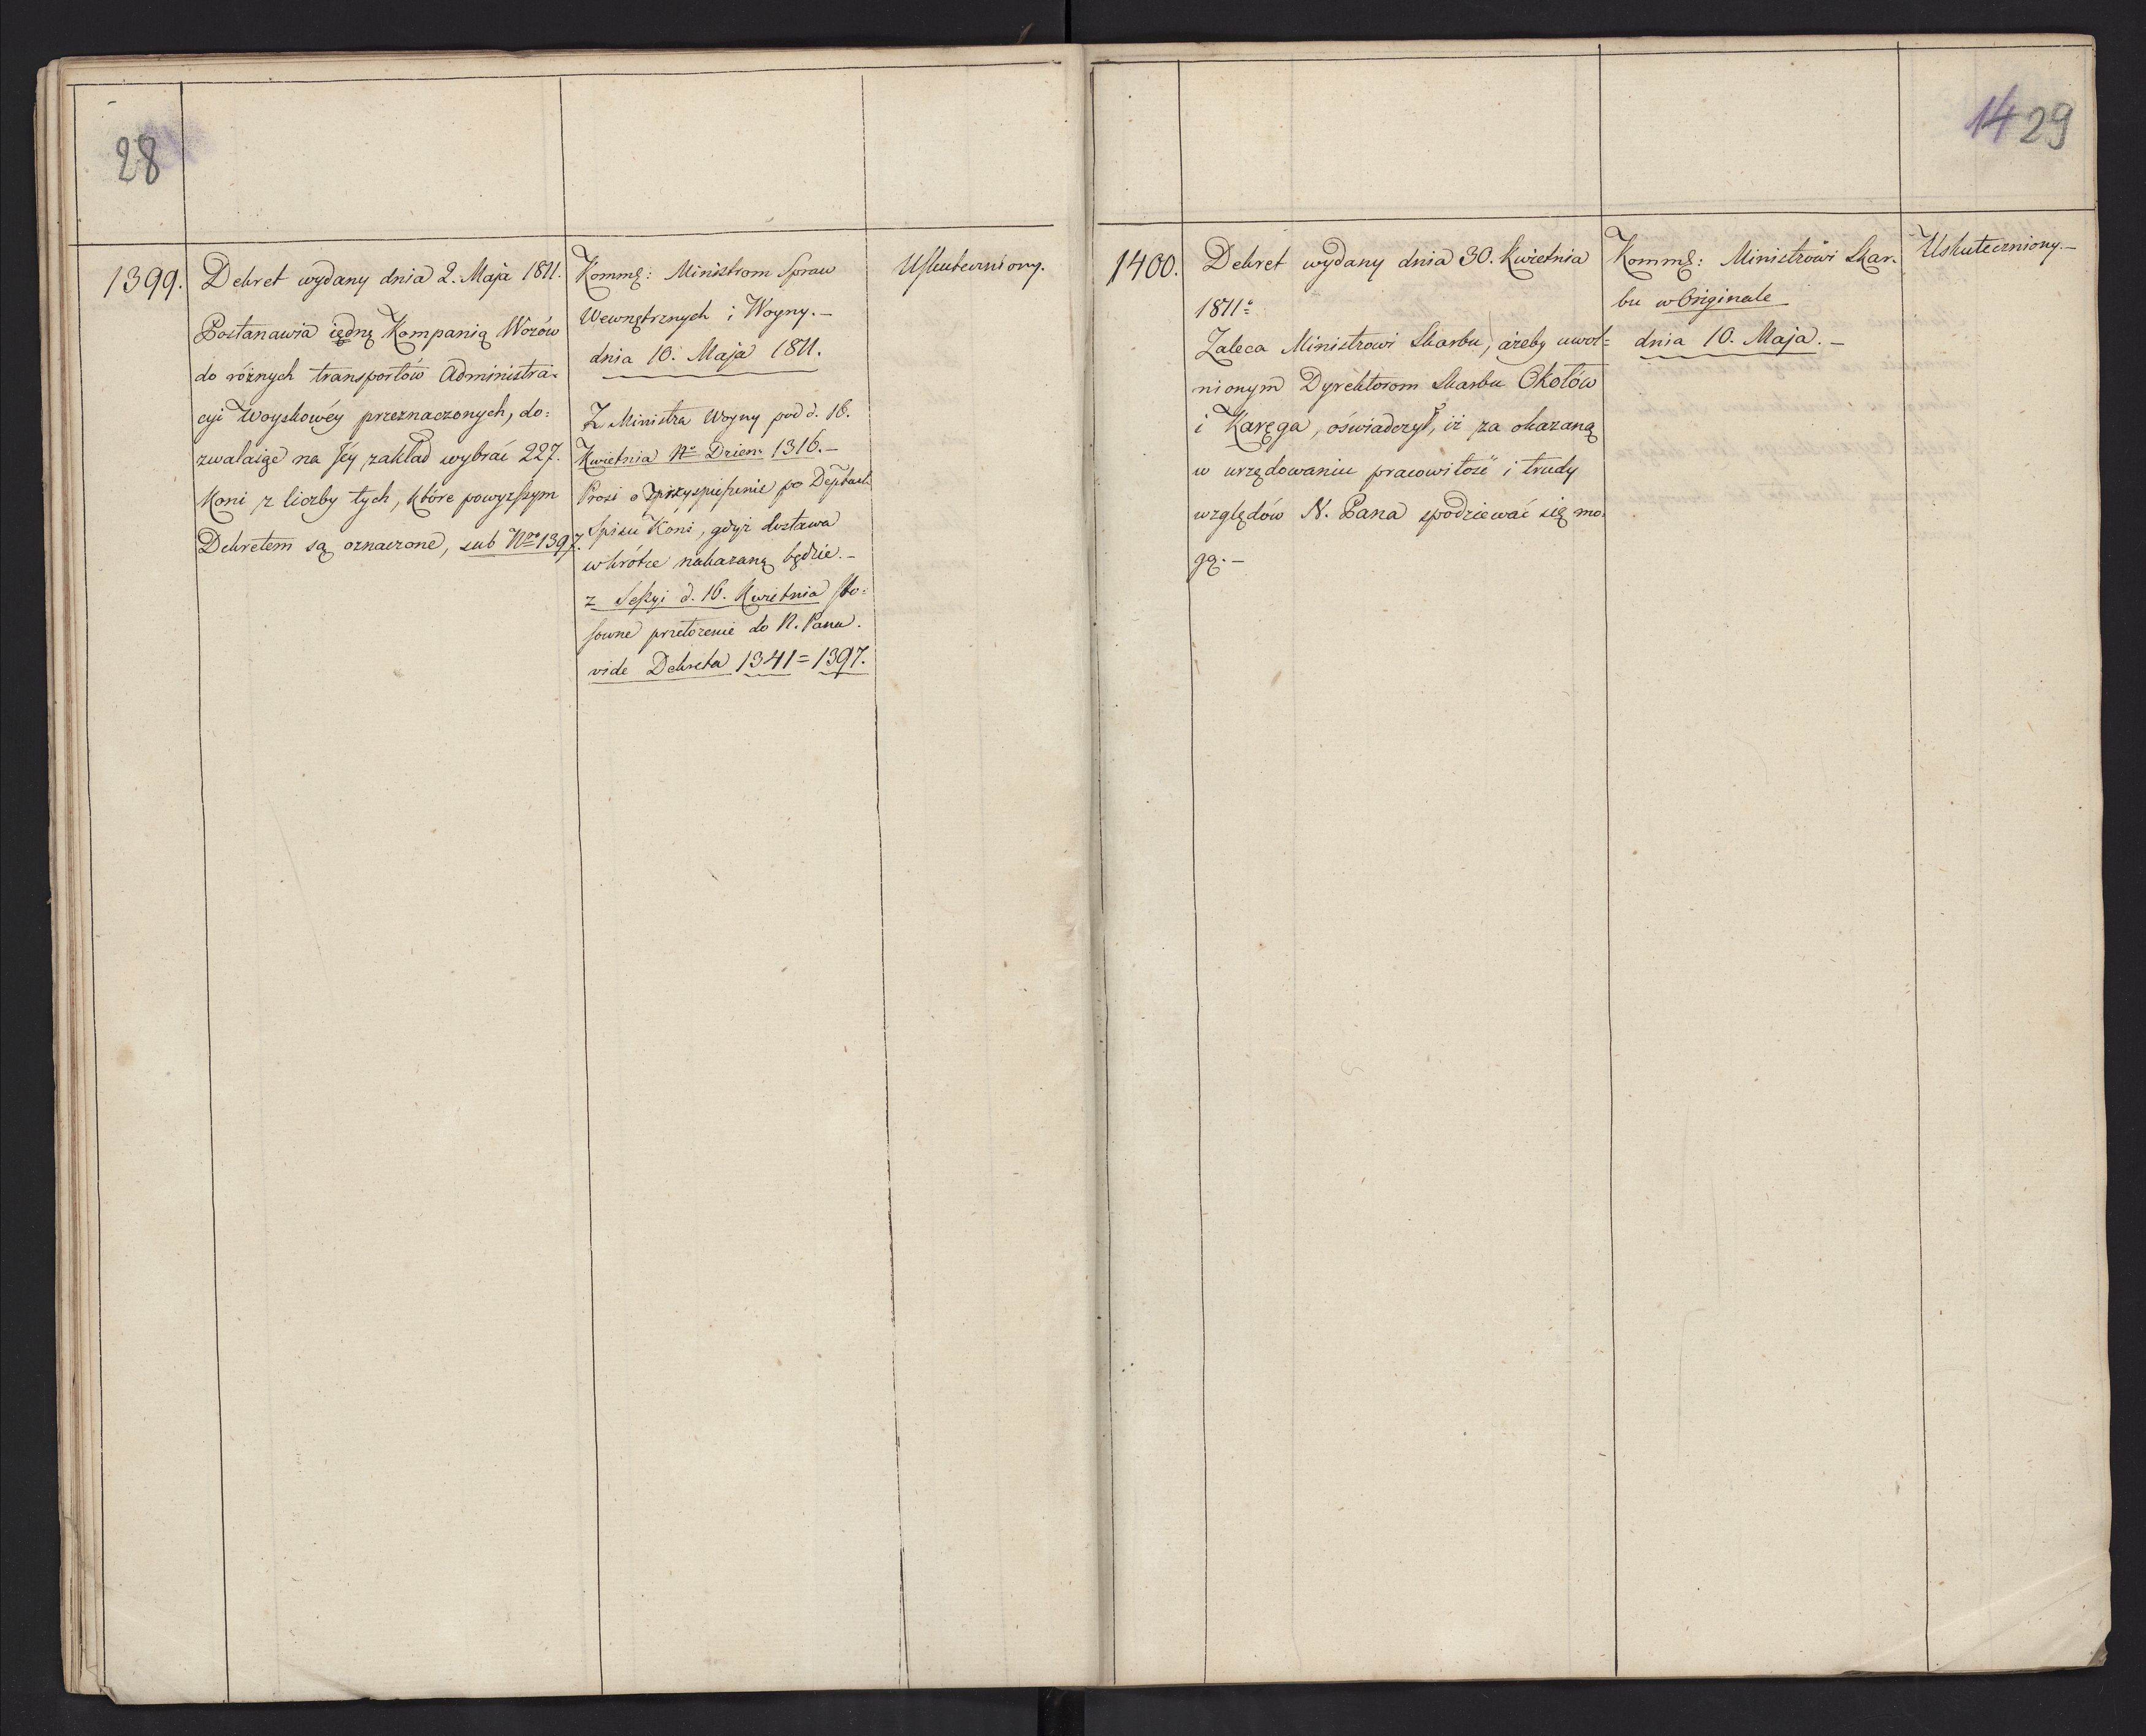 28
1399.
Dekret wydany dnia 2. Maja 1811.
Postanawia iędną Kompanią Wozów
do róznych transportów Administra=
cyi Woyskowéy przeznaczonych, do=
zwalaiąc na Jéy zakład wybrać 227.
Koni z liczby tych, które powyższym
Dekretem są oznaczone, sub Nro 1397.
Kommg: Ministrom Spraw
Wewnętrznych i Woyny. –
dnia 10. Maja 1811.
Z Ministra Woyny pod d. 16.
Kwietnia No Dzien: 1316. –
Prosi o przyspieszenie po Deptach
Spisu Koni, gdyż dostawa
wkrótce nakazaną będzie. –
z Sessyi d. 16. Kwietnia sto=
sowne przełożenie do N. Pana.
vide Dekreta 1341 = 1397.
Uskuteczniony.
14 29
1400.
Dekret wydany dnia 30. Kwietnia
1811o
Zaleca Ministrowi Skarbu, ażeby uwol=
nionym Dyrektorom Skarbu Okołów
i Karęga, oświadczył, iż za okazaną
w urzędowaniu pracowitość i trudy
względów N. Pana spodziewać się mo=
gą. –
Kommg: Ministrowi Skar=
bu w Originale
dnia 10. Maja. –
Uskuteczniony. –